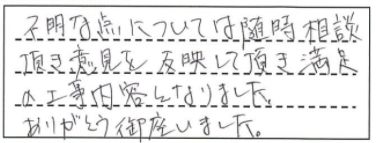 不明な点については随時相談
頂き意見を反映して頂き満足
の工事内容となりました。
ありがとう御座いました。